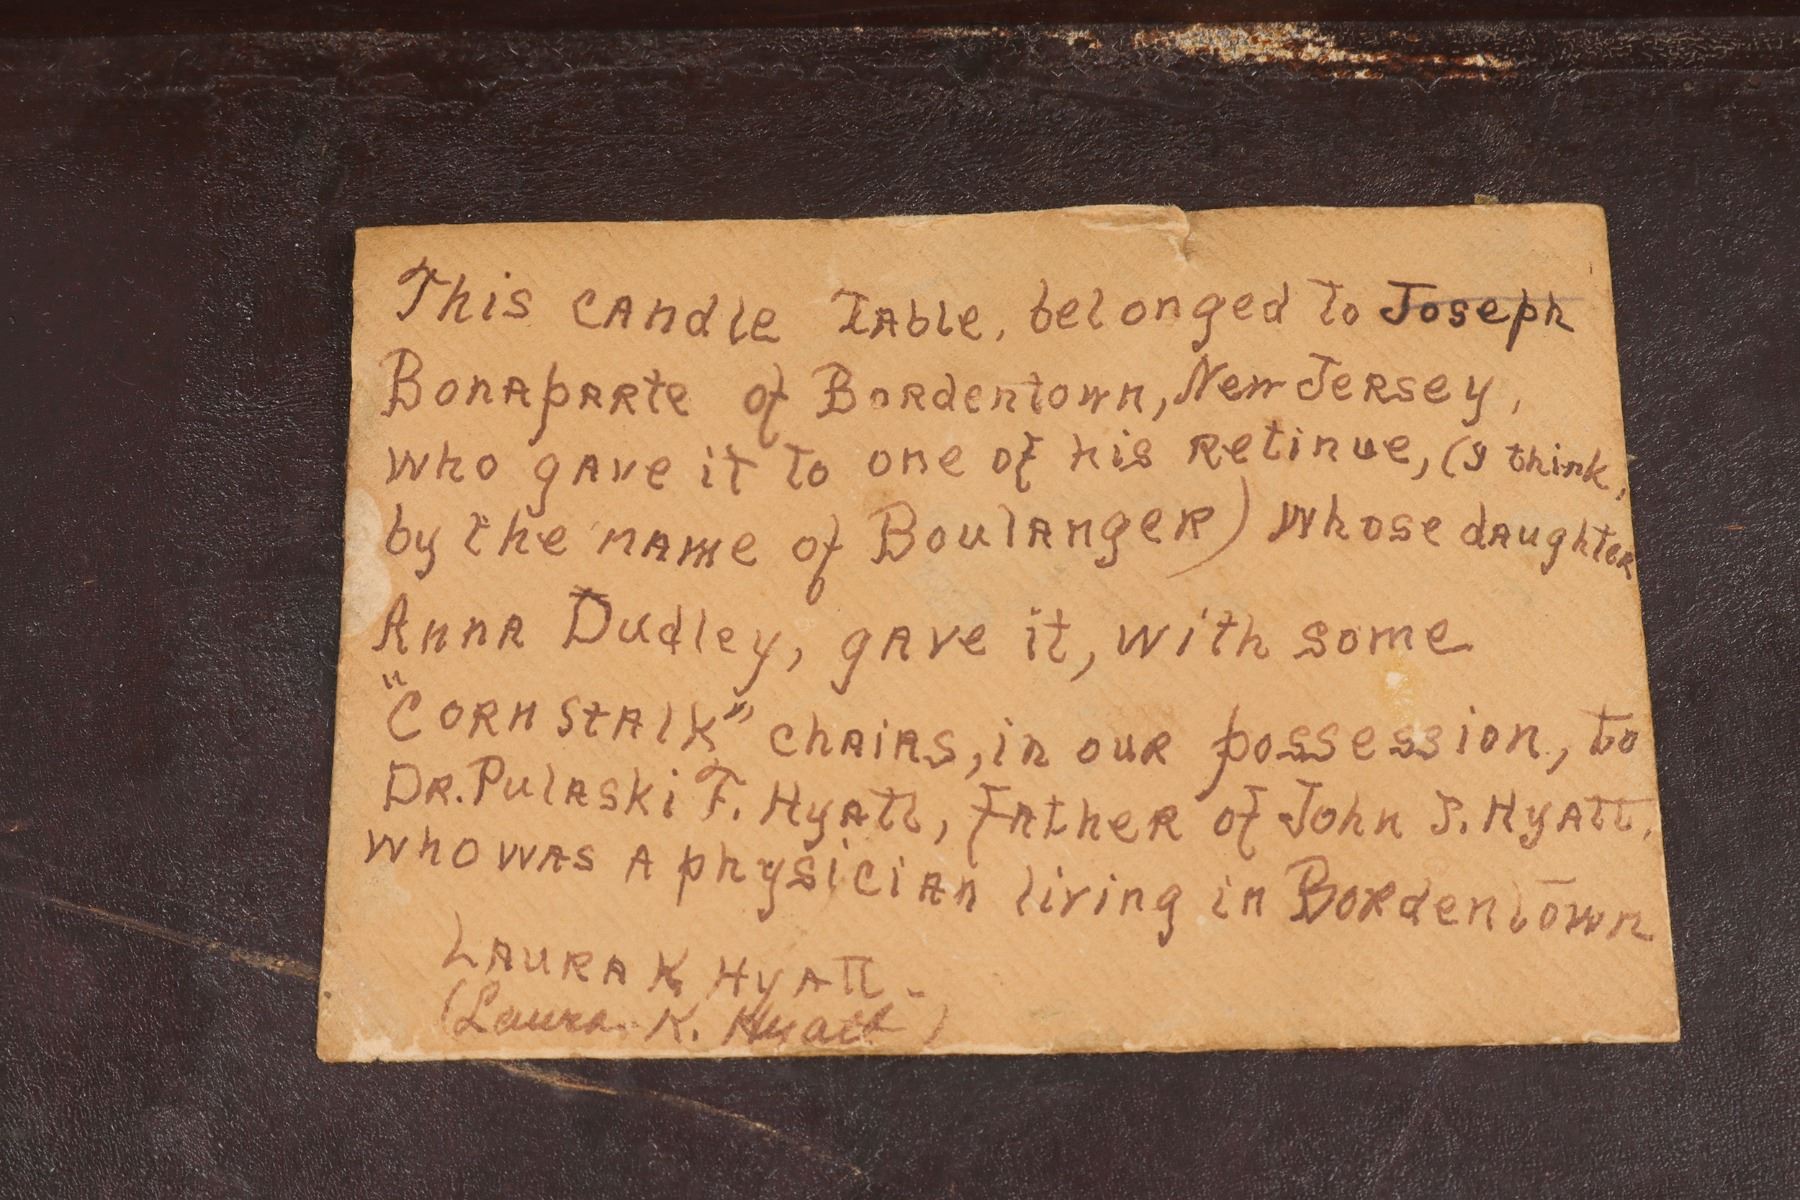 This candle Table, belonged to Joseph
Bonaparte of Bordentown, New Jersey,
who gave it to one of his retinue, (I think,
by the name of Boulanger) whose daughter
Anna Dudley, gave it, with some
"Cornstalk" chairs, in our possession, to
Dr. Pulaski F. Hyatt, Father of John S. Hyatt,
who was a physician living in Bordentown
Laura K Hyatt -
(Laura K. Hyatt)